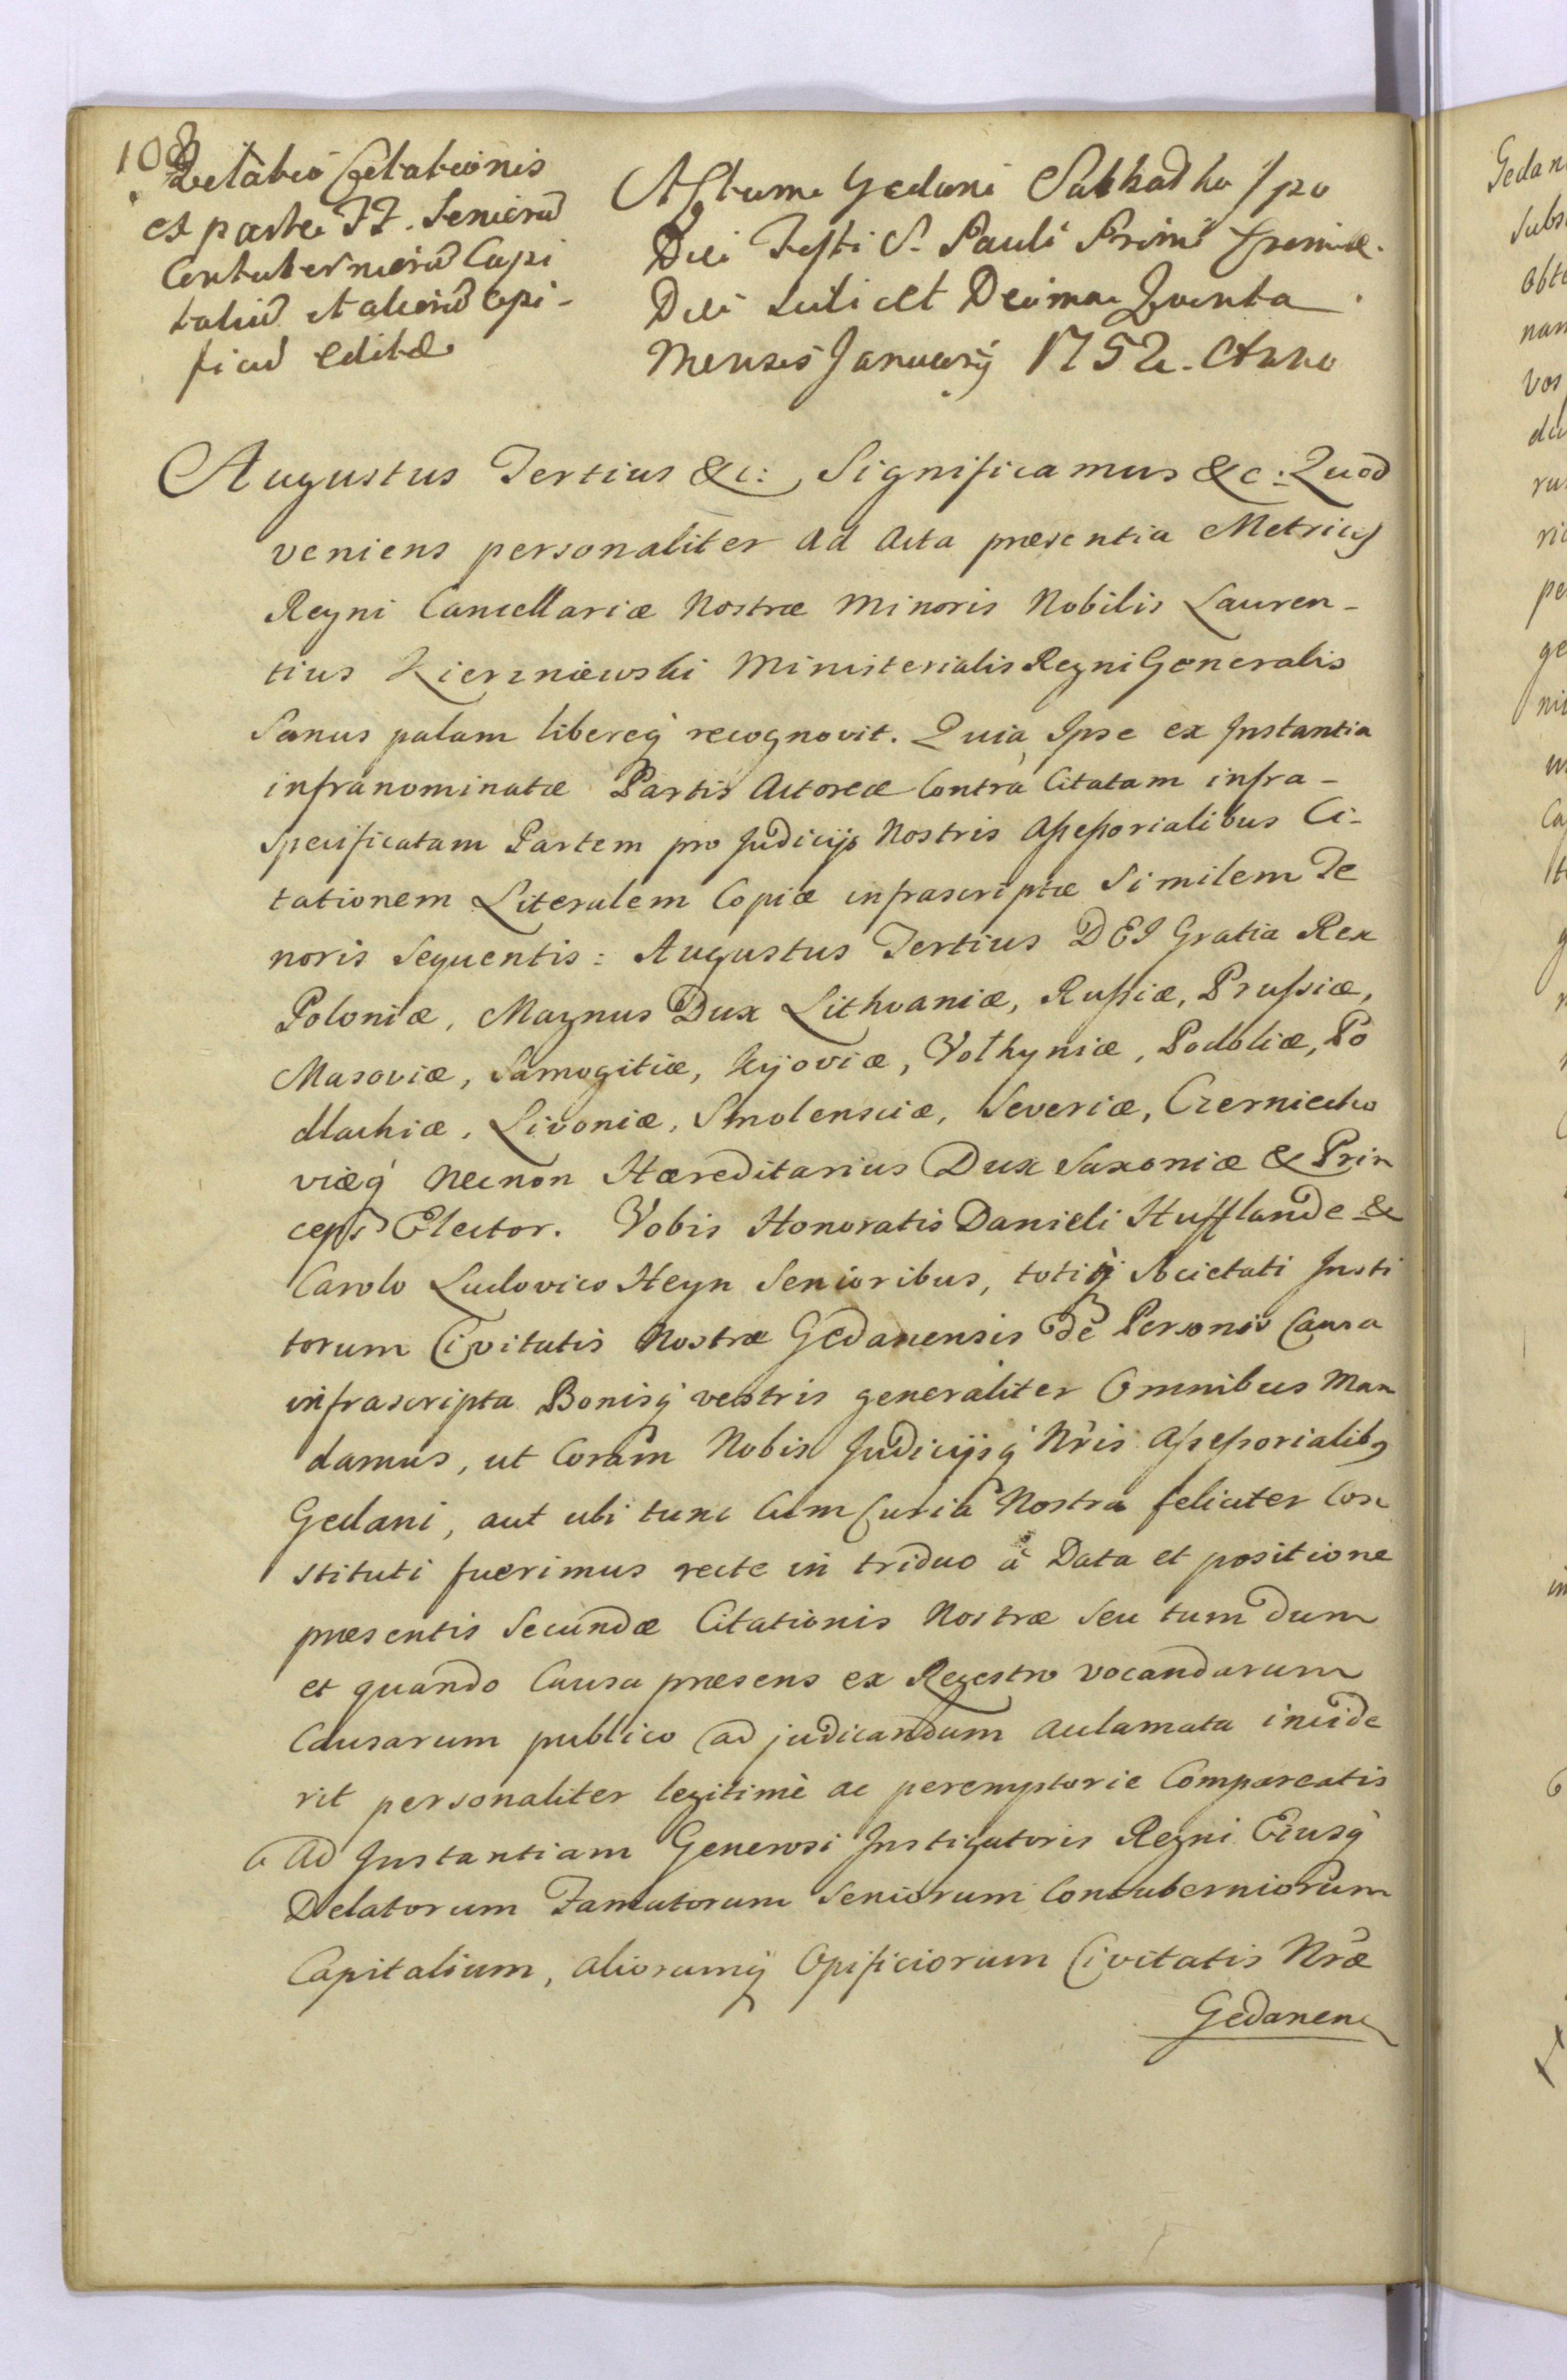 108
Relatio Citationis
ex parte FF. Seniorũ
Contuberniorũ Capi
taliũ et aliorũ Opi-
ficiorũ editæ
Actum Gedani Sabbatho Ipo
Die Festi S. Pauli Primi Eremitæ.
Die scilicet Decima Quinta
Mensis January 1752. Anno
Augustus Tertius &c: Significamus &c: Quod
veniens personaliter ad Acta præsentia Metrices
Regni Cancellariæ Nostræ Minoris Nobilis Lauren-
tius Kierzniewski Ministerialis Regni Generalis
Sanus palam libereq́ recognovit. Quia Ipse ex Instantia
infranominatæ Partis Actoreæ Contrà Citatam infra-
specificatam Partem pro Judicijs Nostris Assessorialibus Ci-
tationem Literalem Copiæ infrascriptæ Similem Te
noris Sequentis: Augustus Tertius DEI Gratia Rex
Poloniæ, Magnus Dux Lithvaniæ, Russiæ, Prussiæ,
Masoviæ, Samogitiæ, Kijoviæ, Volhyniæ, Podoliæ, Po
dlachiæ, Livoniæ, Smolensciæ, Severiæ, Czerniecho
viæq́ Necnon Hæreditarius Dux Saxoniæ & Prin
ceps Elector. Vobis Honoratis Danieli Hufflande &
Carolo Ludovico Heyn Senioribus, totiq́ Societati Insti
torum Civitatis Nostræ Gedanensis de Personis Causa
infrascripta Bonisq́ vestris generaliter Omnibus Man
damus, ut Coràm Nobis Judicijsq́ Nris Assessorialibq
Gedani, aut ubi tunc Cum Curia Nostra feliciter Con
stituti fuerimus recte in triduo à Data et positione
præsentis Secundæ Citationis Nostræ seu tum dum
et quando Causa præsens ex Regestro vocandarum
Causarum publico ad judicandum aclamata incide
rit personaliter legitimè ac peremptorie Compareatis
Ad Instantiam Generosi Instigatoris Regni Eiusq́
Delatorum Famatorum Seniorum Contuberniorum
Capitalium, aliorumq́ Opificiorum Civitatis Nræ
Gedanen